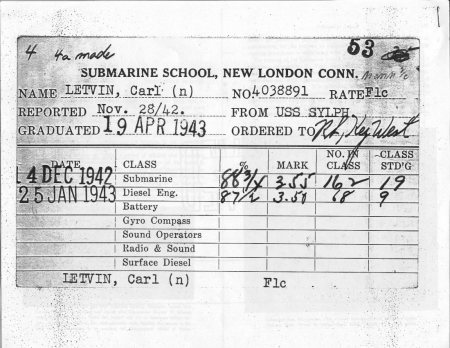 4 4a made 53
SUBMARINE SCHOOL, NEW LONDON CONN.
NAME LETVIN, Carl (n) NO. 4038891 RATE F1c
REPORTED Nov. 28/42. FROM USS SYLPH
GRADUATED 19 APR 1943 ORDERED TO Key West
DATE CLASS % MARK NO. IN CLASS CLASS STD'G
14 DEC 1942 Submarine 88 3/4 3.55 162 19
25 JAN 1943 Diesel Eng. 87 1/2 3.50 68 9
Battery
Gyro Compass
Sound Operators
Radio & Sound
Surface Diesel
LETVIN, Carl (n) F1c